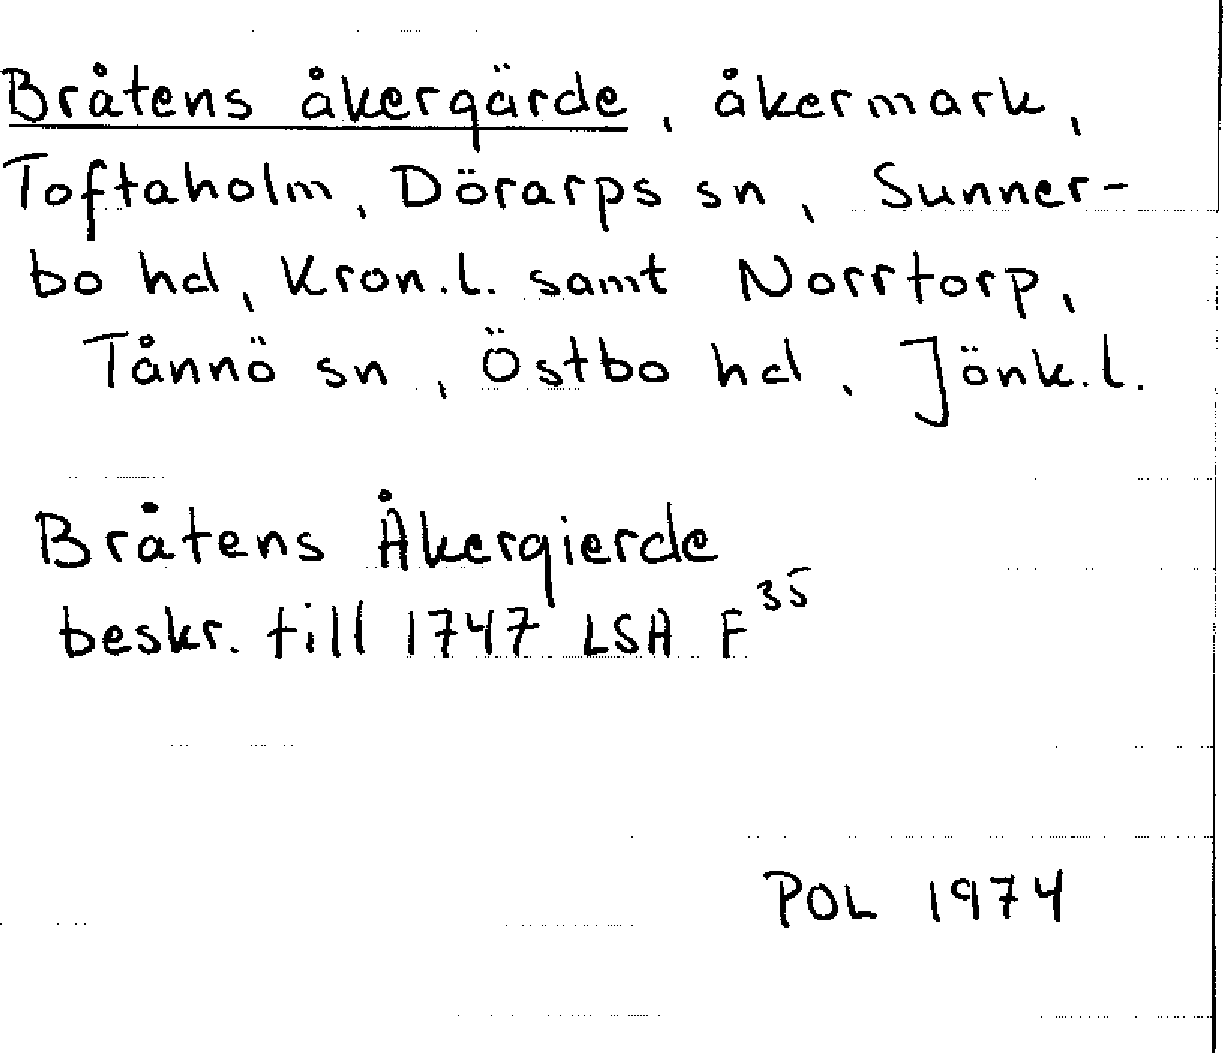 Bråtens åkergärde, åkermark,
Toftaholm, Dörarps sn, Sunner-
bo hd, Kron.l. samt Norrtorp,
Tånnö sn, Östbo hd, Jönk.l.
Bråtens Åkergierde
beskr. till 1747 LSA F³⁵
POL 1974